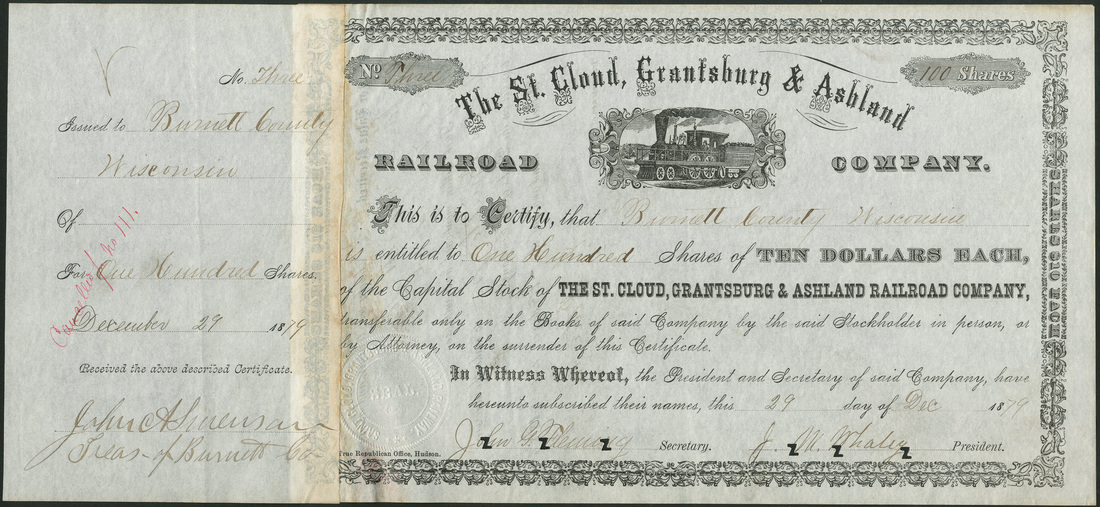 No. Three
Issued to Burnett County
Wisconsin
Of
For One Hundred Shares.
Cancelled!
December 29 1879
Received the above described Certificate.
John A Swenson
Treas- of Burnett Co-
No Three
100 Shares
The St. Cloud, Grantsburg & Ashland
RAILROAD COMPANY.
This is to Certify, that Burnett County Wisconsin
is entitled to One Hundred Shares of TEN DOLLARS EACH,
of the Capital Stock of THE ST. CLOUD, GRANTSBURG & ASHLAND RAILROAD COMPANY,
transferable only on the Books of said Company by the said Stockholder in person, or
by Attorney, on the surrender of this Certificate.
In Witness Whereof, the President and Secretary of said Company, have
hereunto subscribed their names, this 29 day of Dec 1879
John G. Fleming Secretary. J. M. Whaley President.
True Republican Office, Hudson.
SEAL.
SHARES $10 EACH